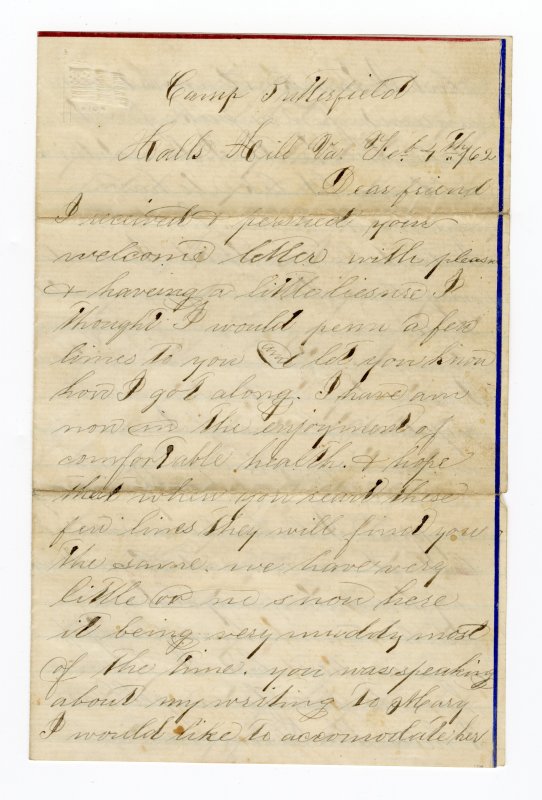 Camp Butterfield
Halls Hill Va. Feb 4th /62
Dear friend
I received & perused your
welcome letter with pleasure
& haveing a little liesure I
thought I would penn a few
lines to you and let you know
how I got along. I have am
now in the enjoyment of
comfortable health. & hope
that when you read these
few lines they will find you
the same. we have very
little or no snow here
it being very muddy most
of the time. you was speaking
about my writing to Mary
I would like to accomodate her